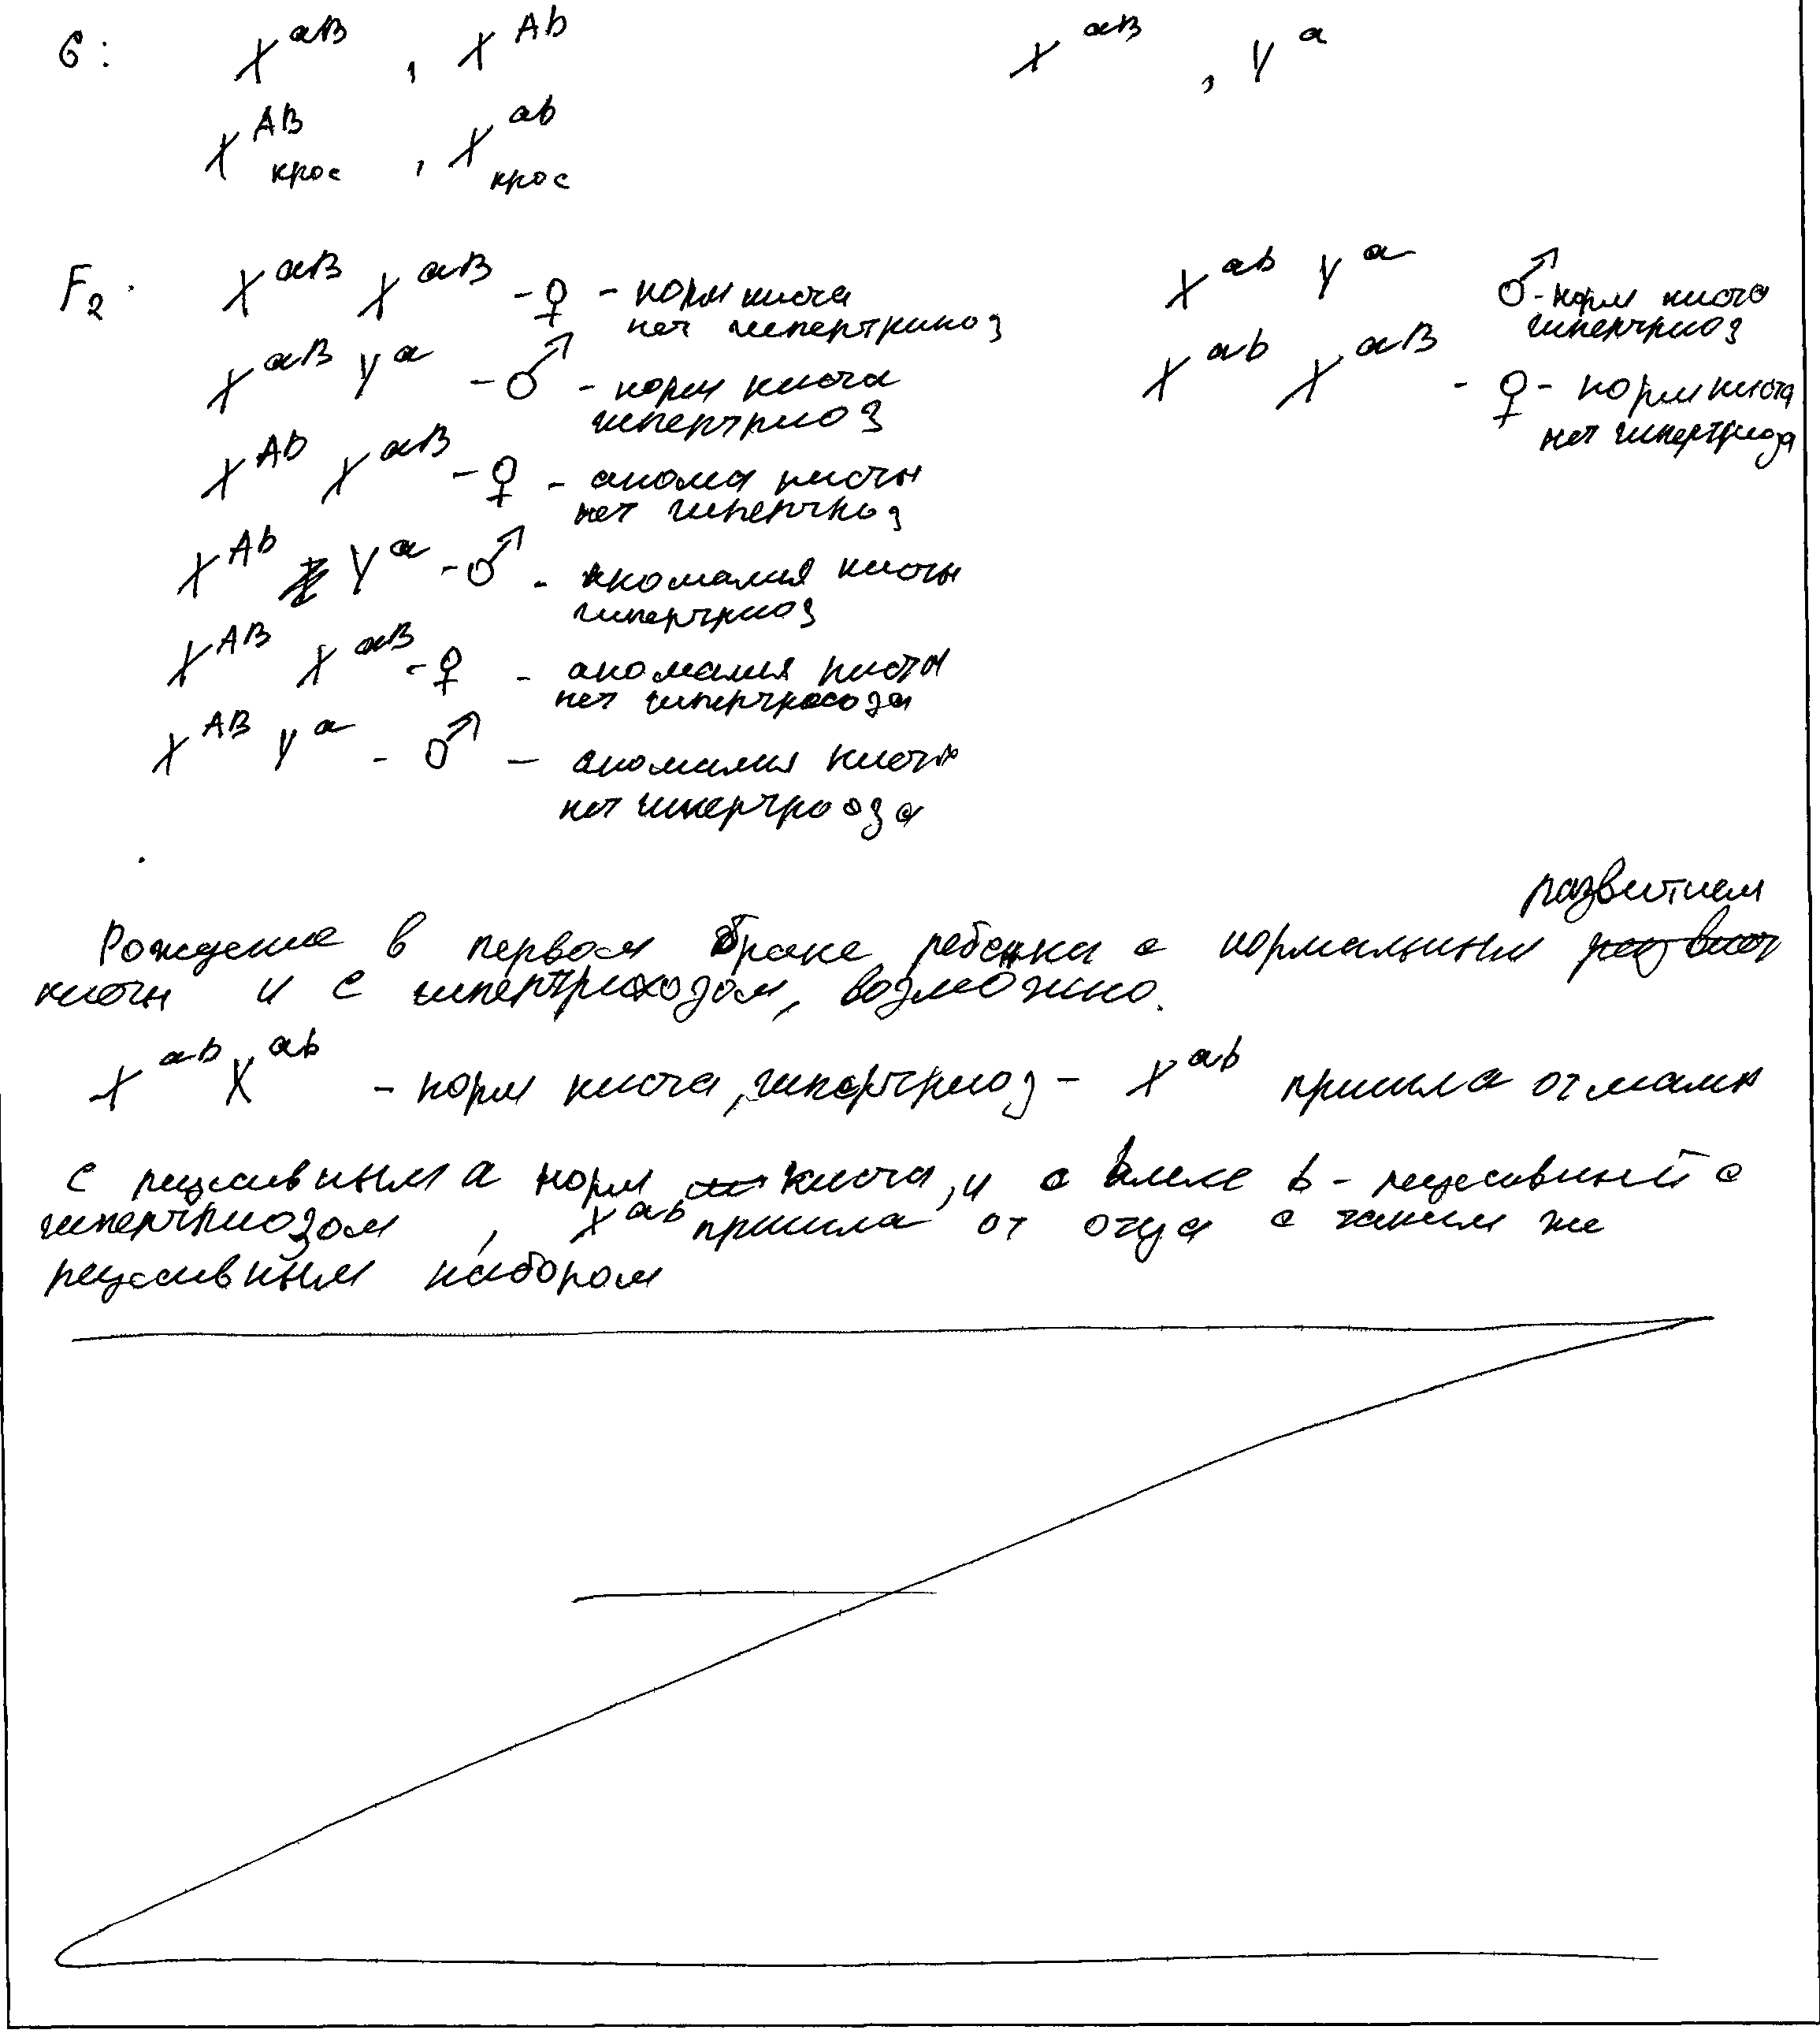 G: X^aB , X^Ab X^aB , Y^a
X^AB крос , X^ab крос
F2. X^aB X^aB - ♀ - норм кисча
нет гипертрихоз
X^aB Y^a - ♂ - норм кисча
гипертриоз
X^Ab X^aB - ♀ - анома кисчы
нет гиперчиоз
X^Ab Y^a - ♂ - аномалия кисчы
гипертриоз
X^AB X^aB - ♀ - аномалия кисты
нет
X^AB Y^a - ♂ - аномалия кисты
нет гипертриоза
X^ab Y^a ♂ - норм кисча
гипертриоз
X^ab X^aB - ♀ - норм киста
нет гипертриоза
Рождение в первом браке ребенка с нормальным развитием
кисты и с гипертрихозом, возможно.
X^ab X^ab - норм кисча, гипертриоз - X^ab пришла от мамы
с рецесивным а норм кисча, и с b - рецесивный с
гипертриозом , X^ab пришла от отца с таким же
рецесивным набором